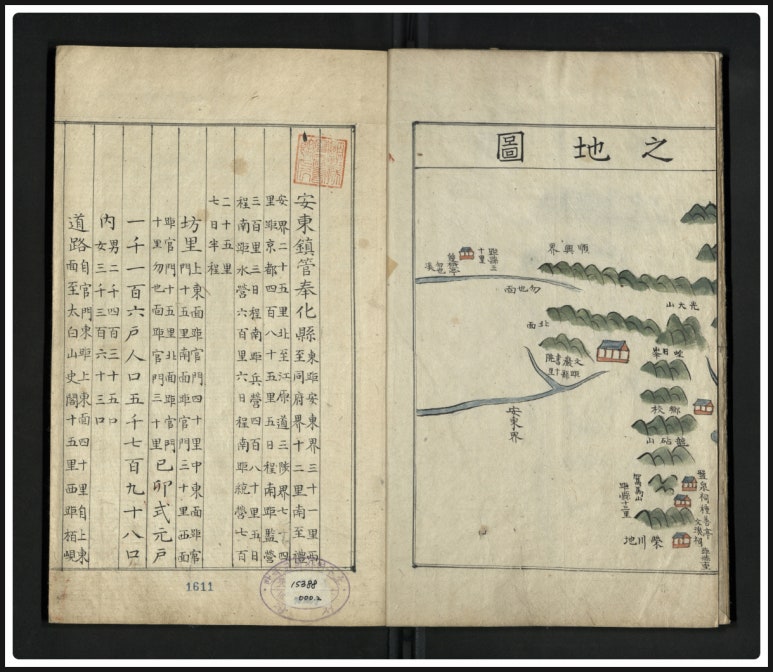 之地圖
順興界
距縣三十里
勿也面
文大山
北面
文巖書院
安東界
鄕校
駕馬山
距縣十三里
榮川地
安東鎮管奉化縣
東距安東界三十一里西
至同府界十二里南至禮
安界二十五里北至江原道三陟界七十四
里距京都四百八十五里五日程南距監營
三百里三日程南距兵營四百八十里五日
程南距水營六百里六日程南距統營七百
二十五里
七日半程
坊里
上東面距官門四十里中東面距官
門十五里南面距官門三十里西面
距官門十五里北面距官門
十里勿也面距官門三十里
己卯式元戶
一千一百六戶人口五千七百九十八口
內
男二千四百三十五口
女三千三百六十三口
道路
自官門東距上東面四十里自上東
面至太白山史閣十五里西距栢峴
1611
15388
000.2